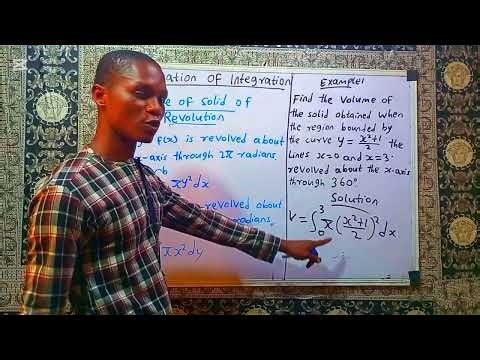 ation of Integration
e of solid of
Revolution
f(x) is revolved about
-axis through 2π radians
πy²dx
revolved about
radians
πx²dy
Example 1
Find the volume of
the solid obtained when
the region bounded by
the curve y = x²+1/2 the
lines x=0 and x=3.
revolved about the x-axis
through 360°
Solution
V = ∫₀³ π(x²+1/2)² dx